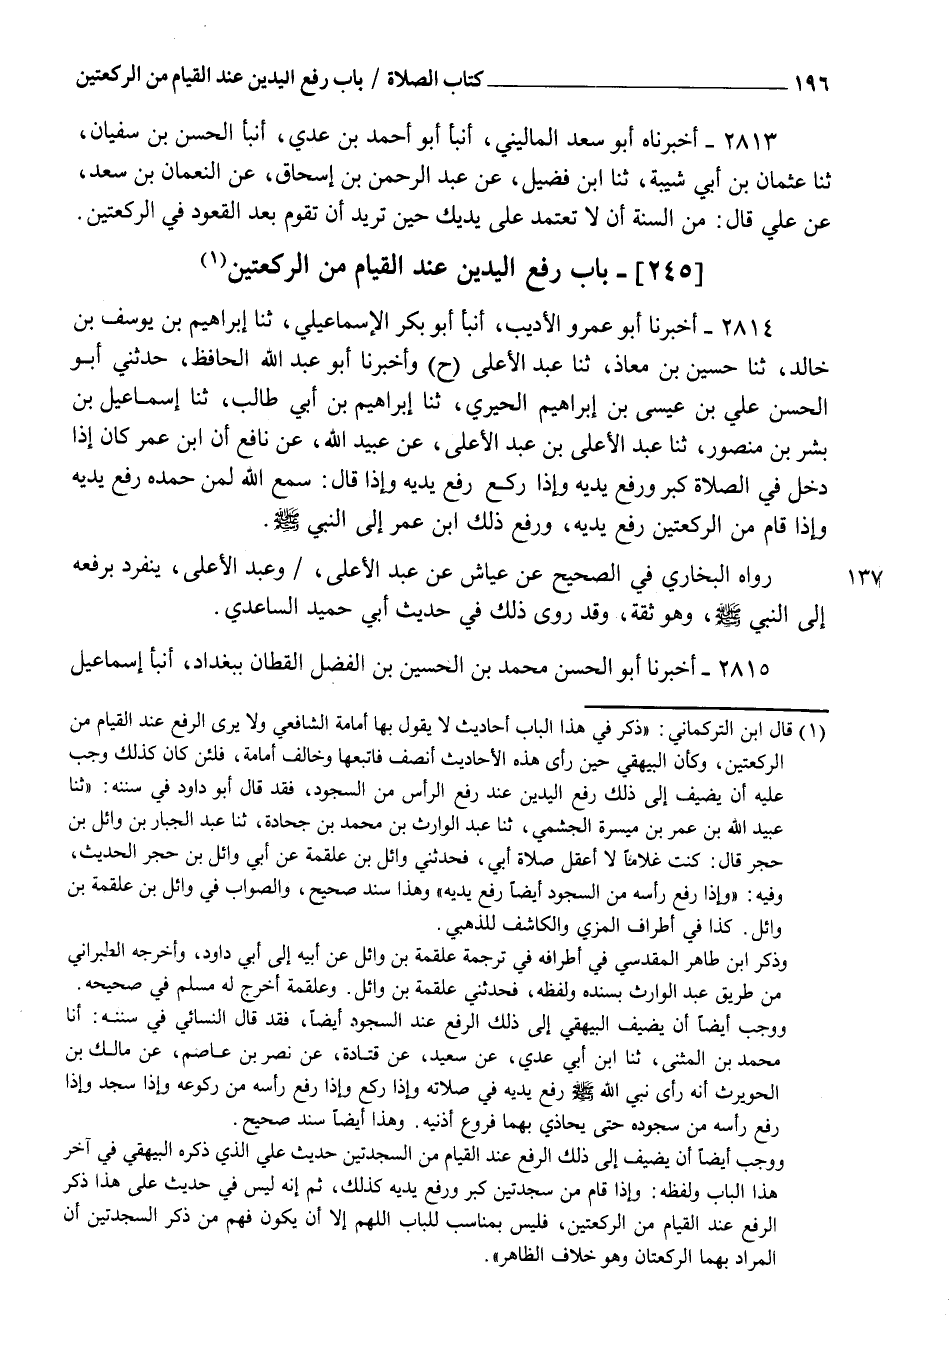 ١٩٦ كتاب الصلاة / باب رفع اليدين عند القيام من الركعتين
٢٨١٣ ـ أخبرناه أبو سعد الماليني، أنبأ أبو أحمد بن عدي، أنبأ الحسن بن سفيان،
ثنا عثمان بن أبي شيبة، ثنا ابن فضيل، عن عبد الرحمن بن إسحاق، عن النعمان بن سعد،
عن علي قال: من السنة أن لا تعتمد على يديك حين تريد أن تقوم بعد القعود في الركعتين.
[٢٤٥] ـ باب رفع اليدين عند القيام من الركعتين(١)
٢٨١٤ ـ أخبرنا أبو عمرو الأديب، أنبأ أبو بكر الإسماعيلي، ثنا إبراهيم بن يوسف بن
خالد، ثنا حسين بن معاذ، ثنا عبد الأعلى (ح) وأخبرنا أبو عبد الله الحافظ، حدثني أبو
الحسن علي بن عيسى بن إبراهيم الحيري، ثنا إبراهيم بن أبي طالب، ثنا إسماعيل بن
بشر بن منصور، ثنا عبد الأعلى بن عبد الأعلى، عن عبيد الله، عن نافع أن ابن عمر كان إذا
دخل في الصلاة كبر ورفع يديه وإذا ركع رفع يديه وإذا قال: سمع الله لمن حمده رفع يديه
وإذا قام من الركعتين رفع يديه، ورفع ذلك ابن عمر إلى النبي ﷺ.
رواه البخاري في الصحيح عن عياش عن عبد الأعلى، / وعبد الأعلى، ينفرد برفعه ١٣٧
إلى النبي ﷺ، وهو ثقة، وقد روى ذلك في حديث أبي حميد الساعدي.
٢٨١٥ ـ أخبرنا أبو الحسن محمد بن الحسين بن الفضل القطان ببغداد، أنبأ إسماعيل
(١) قال ابن التركماني: «ذكر في هذا الباب أحاديث لا يقول بها أمامة الشافعي ولا يرى الرفع عند القيام من
الركعتين، وكأن البيهقي حين رأى هذه الأحاديث أنصف فاتبعها وخالف أمامة، فلئن كان كذلك وجب
عليه أن يضيف إلى ذلك رفع اليدين عند رفع الرأس من السجود، فقد قال أبو داود في سننه: «ثنا
عبيد الله بن عمر بن ميسرة الجشمي، ثنا عبد الوارث بن محمد بن جحادة، ثنا عبد الجبار بن وائل بن
حجر قال: كنت غلاماً لا أعقل صلاة أبي، فحدثني وائل بن علقمة عن أبي وائل بن حجر الحديث،
وفيه: «وإذا رفع رأسه من السجود أيضاً رفع يديه» وهذا سند صحيح، والصواب في وائل بن علقمة بن
وائل. كذا في أطراف المزي والكاشف للذهبي.
وذكر ابن طاهر المقدسي في أطرافه في ترجمة علقمة بن وائل عن أبيه إلى أبي داود، وأخرجه الطبراني
من طريق عبد الوارث بسنده ولفظه، فحدثني علقمة بن وائل. وعلقمة أخرج له مسلم في صحيحه.
ووجب أيضاً أن يضيف البيهقي إلى ذلك الرفع عند السجود أيضاً، فقد قال النسائي في سننه: أنا
محمد بن المثنى، ثنا ابن أبي عدي، عن سعيد، عن قتادة، عن نصر بن عاصم، عن مالك بن
الحويرث أنه رأى نبي الله ﷺ رفع يديه في صلاته وإذا ركع وإذا رفع رأسه من ركوعه وإذا سجد وإذا
رفع رأسه من سجوده حتى يحاذي بهما فروع أذنيه. وهذا أيضاً سند صحيح.
ووجب أيضاً أن يضيف إلى ذلك الرفع عند القيام من السجدتين حديث علي الذي ذكره البيهقي في آخر
هذا الباب ولفظه: وإذا قام من سجدتين كبر ورفع يديه كذلك، ثم إنه ليس في حديث على هذا ذكر
الرفع عند القيام من الركعتين، فليس بمناسب للباب اللهم إلا أن يكون فهم من ذكر السجدتين أن
المراد بهما الركعتان وهو خلاف الظاهر».